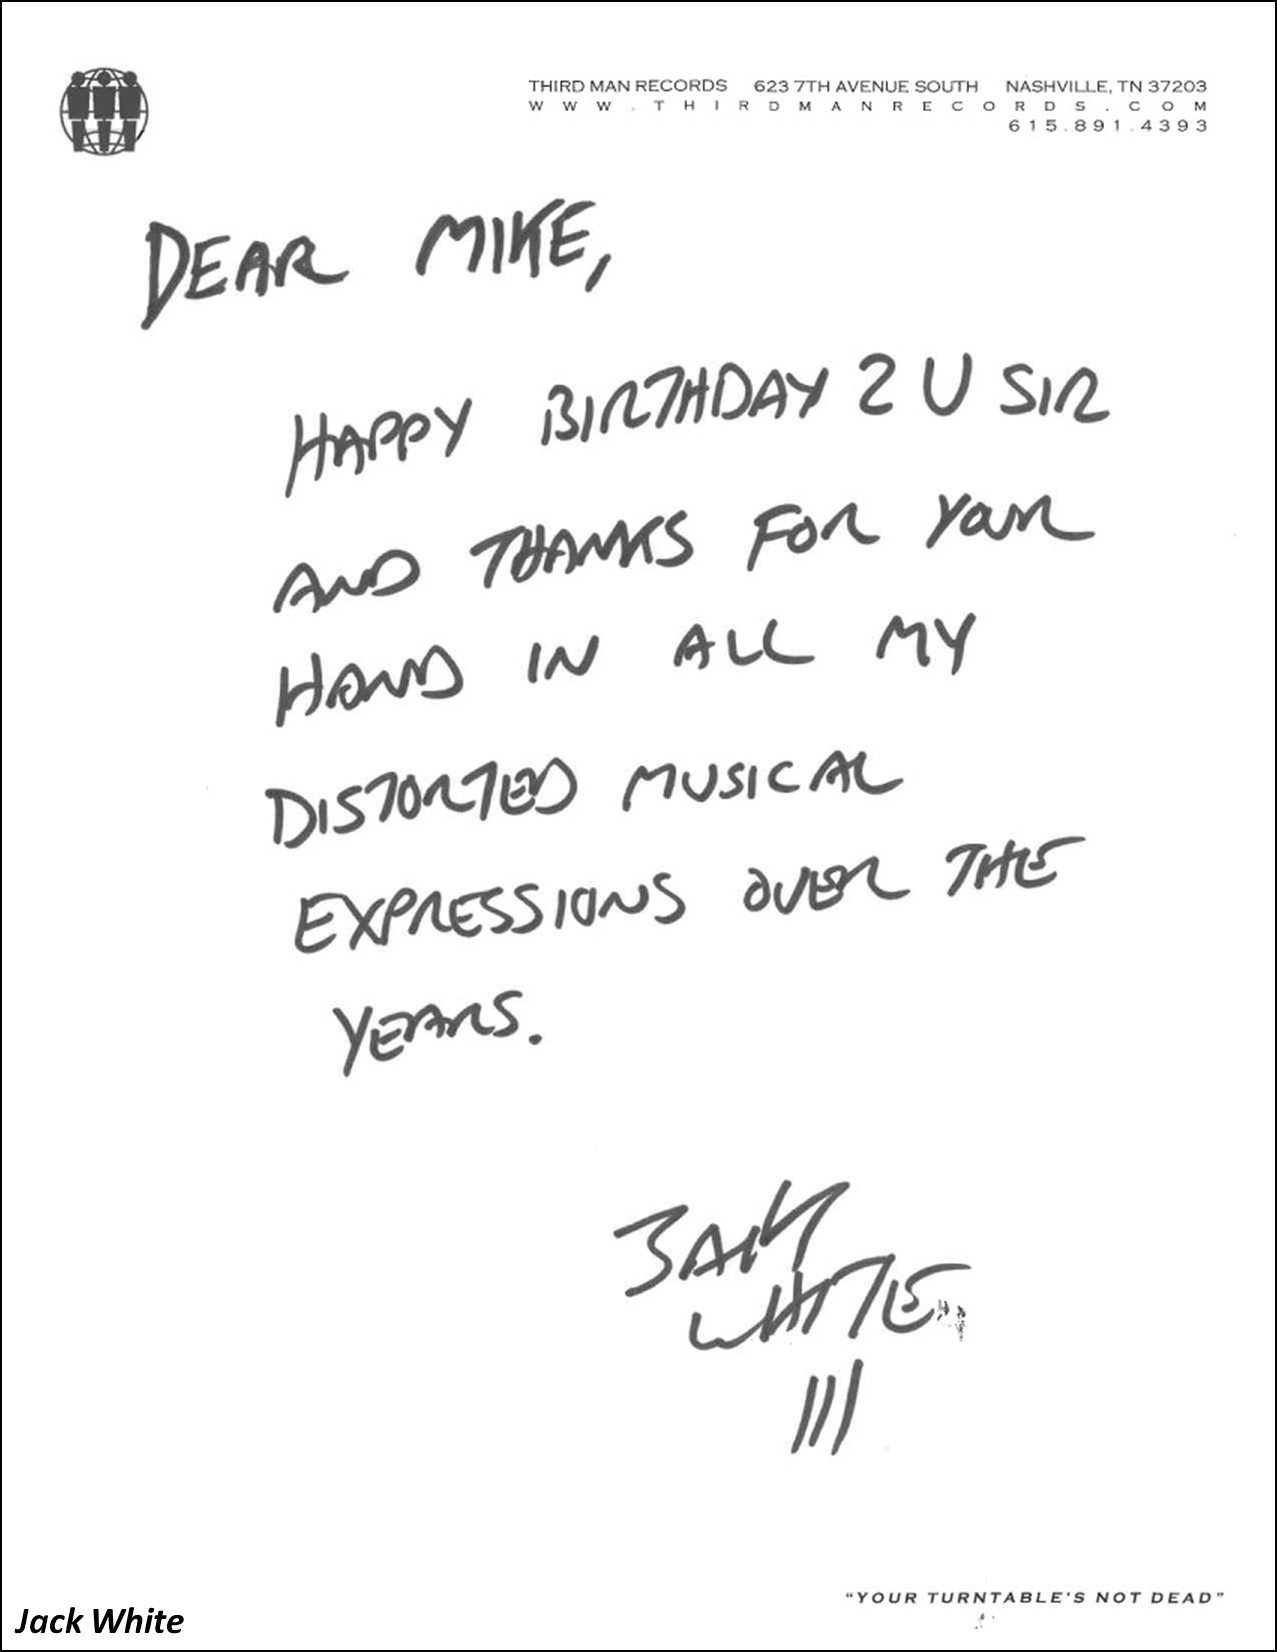 THIRD MAN RECORDS 623 7TH AVENUE SOUTH NASHVILLE, TN 37203
WWW.THIRDMANRECORDS.COM
615.891.4393
DEAR MIKE,
HAPPY BIRTHDAY 2 U SIR
AND THANKS FOR YOUR
HAND IN ALL MY
DISTORTED MUSICAL
EXPRESSIONS OVER THE
YEARS.
JACK
WHITE
III
"YOUR TURNTABLE'S NOT DEAD"
Jack White